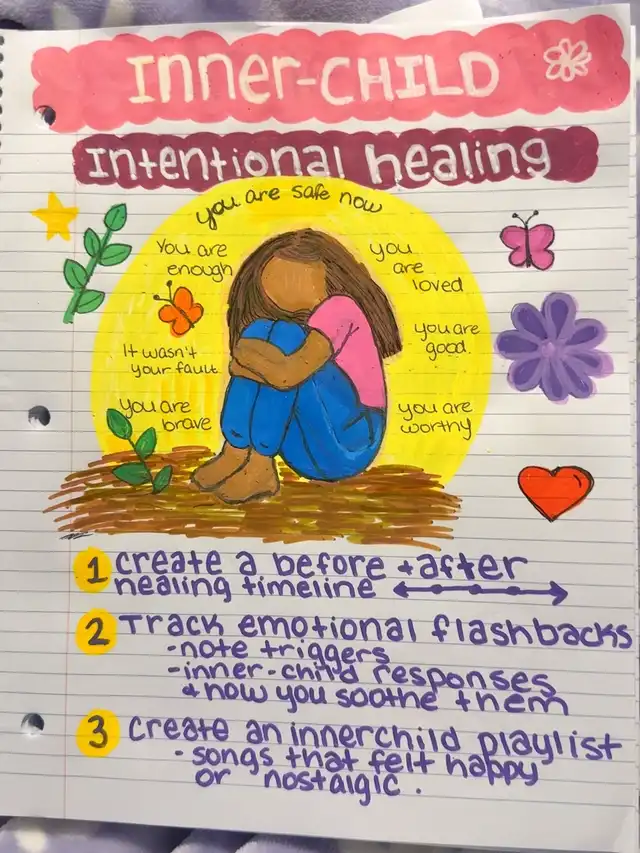 Inner-CHILD
Intentional healing
you are safe now
You are
enough
you
are
loved
It wasn't
your fault
you are
good.
you are
brave
you are
worthy
1 create a before + after
healing timeline
2 Track emotional flashbacks
-note triggers
-inner-child responses
& how you soothe them
3 Create an innerchild playlist
- songs that felt happy
or nostalgic.